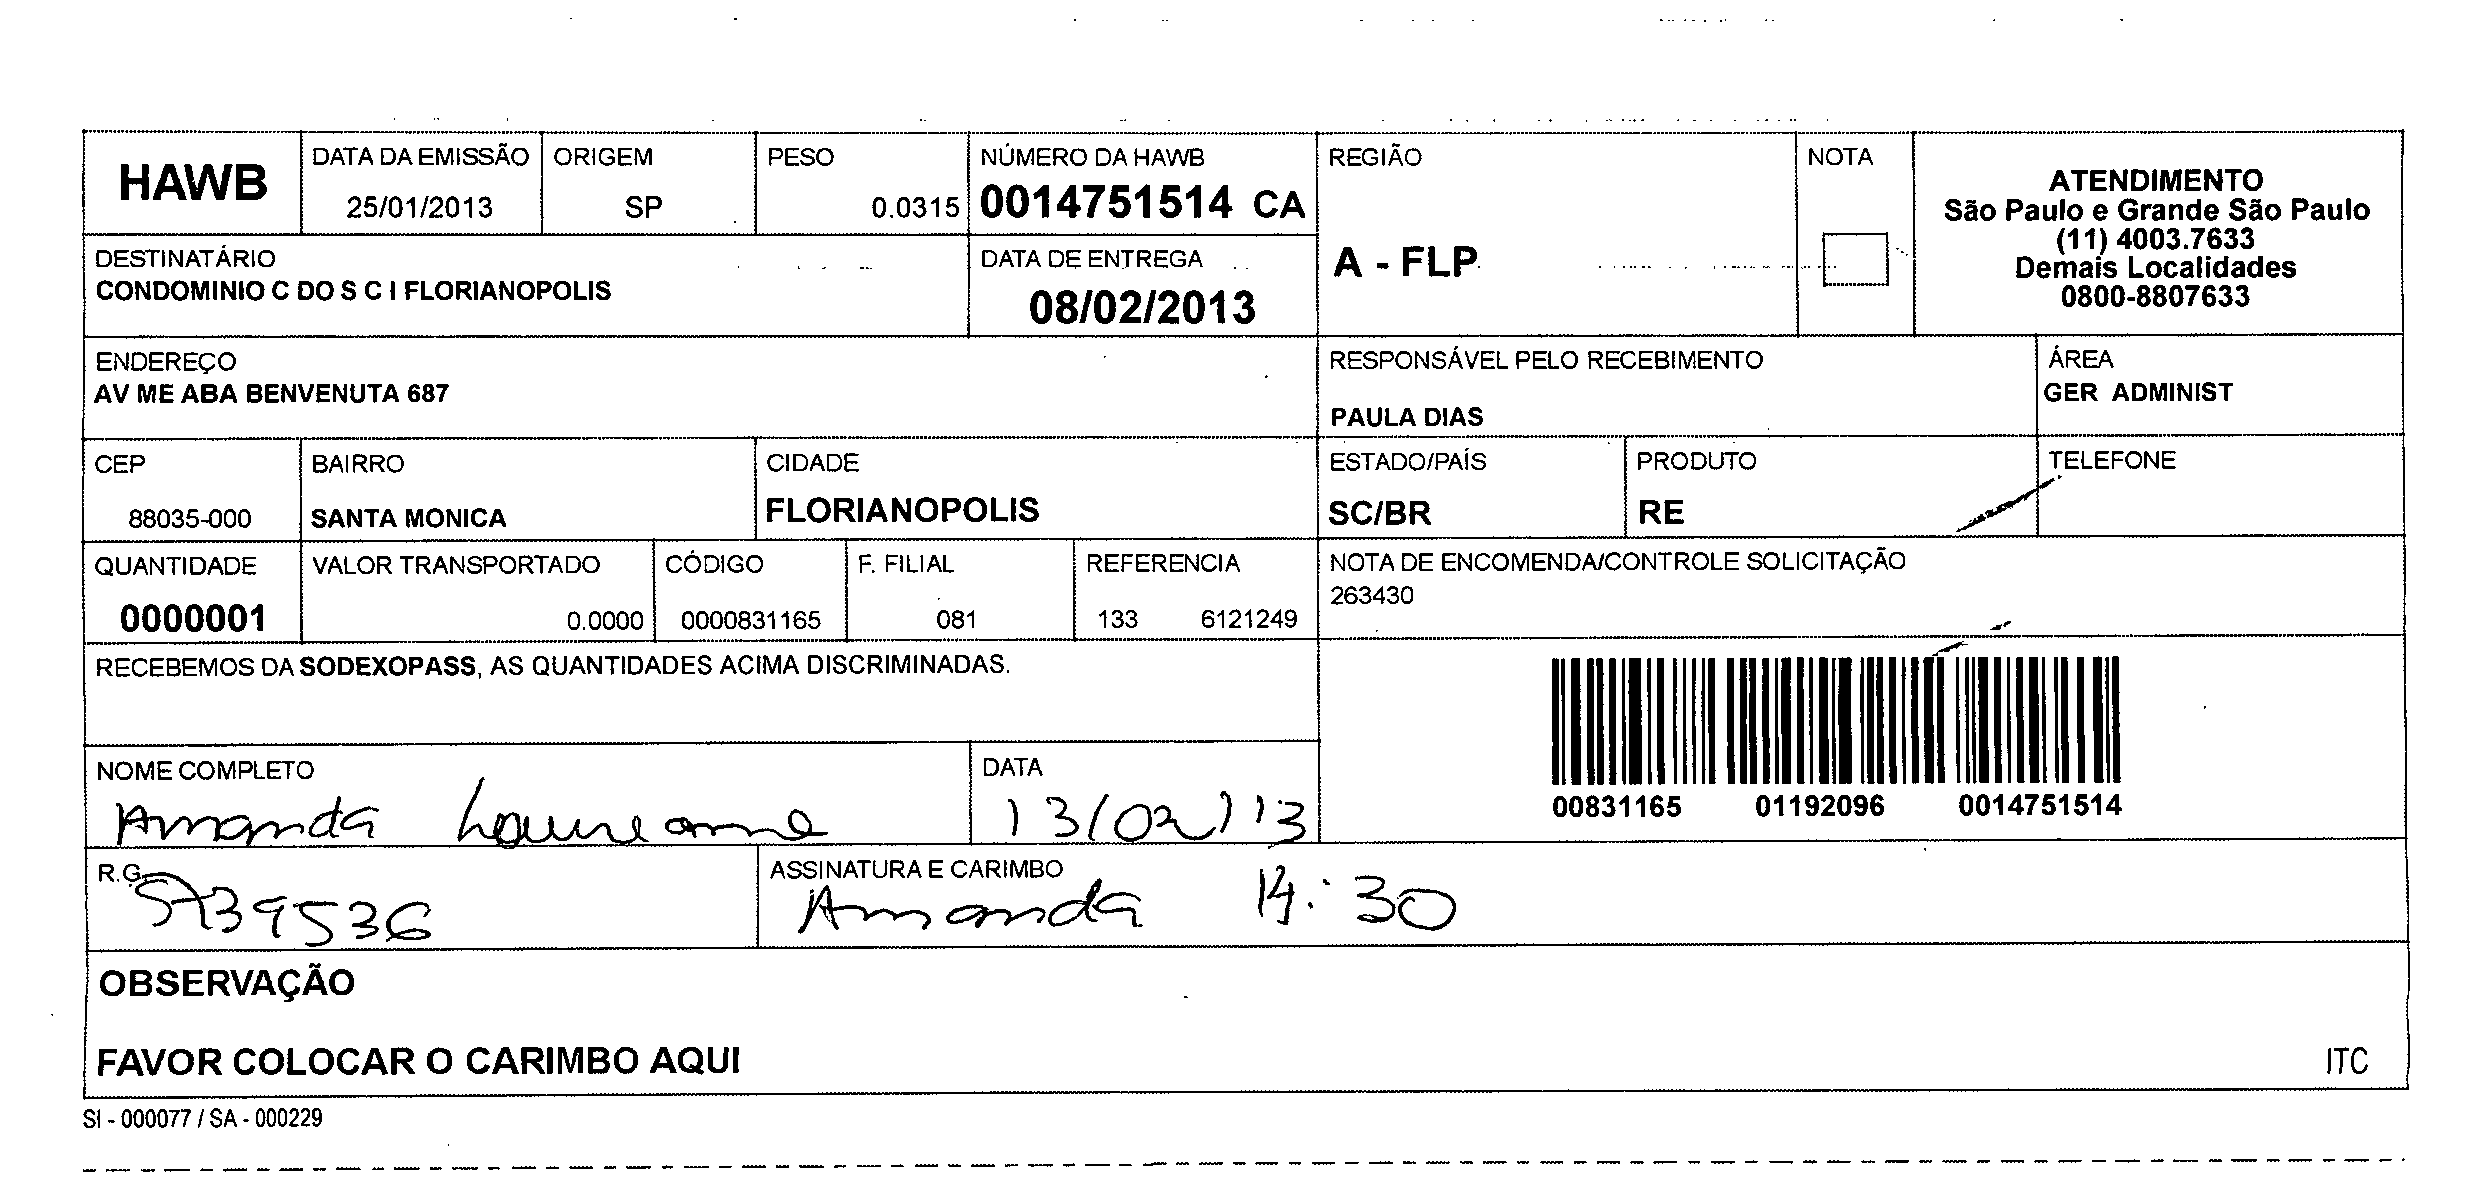 HAWB
DATA DA EMISSÃO
25/01/2013
ORIGEM
SP
PESO
0.0315
NÚMERO DA HAWB
0014751514 CA
REGIÃO
A - FLP
NOTA
ATENDIMENTO
São Paulo e Grande São Paulo
(11) 4003.7633
Demais Localidades
0800-8807633
DESTINATÁRIO
CONDOMINIO C DO S C I FLORIANOPOLIS
DATA DE ENTREGA
08/02/2013
ENDEREÇO
AV ME ABA BENVENUTA 687
RESPONSÁVEL PELO RECEBIMENTO
PAULA DIAS
ÁREA
GER ADMINIST
CEP
88035-000
BAIRRO
SANTA MONICA
CIDADE
FLORIANOPOLIS
ESTADO/PAÍS
SC/BR
PRODUTO
RE
TELEFONE
QUANTIDADE
0000001
VALOR TRANSPORTADO
0.0000
CÓDIGO
0000831165
F. FILIAL
081
REFERENCIA
133 6121249
NOTA DE ENCOMENDA/CONTROLE SOLICITAÇÃO
263430
RECEBEMOS DA SODEXOPASS, AS QUANTIDADES ACIMA DISCRIMINADAS.
00831165 01192096 0014751514
NOME COMPLETO
Amanda
DATA
13/02/13
R.G.
ASSINATURA E CARIMBO
Amanda 14:30
OBSERVAÇÃO
FAVOR COLOCAR O CARIMBO AQUI
ITC
SI - 000077 / SA - 000229